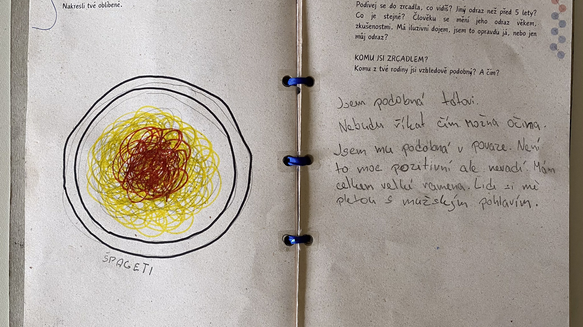 Nakresli tvé oblíbené.
ŠPAGETI
Podívej se do zrcadla, co vidíš? Jiný odraz než před 5 lety?
Co je stejné? Člověku se mění jeho odraz věkem,
zkušenostmi. Má iluzivní dojem, jsem to opravdu já, nebo jen
můj odraz?
KOMU JSI ZRCADLEM?
Komu z tvé rodiny jsi vzhledově podobný? A čím?
Jsem podobná tátovi.
Nebudu říkat čím možna očima.
Jsem mu podobná v povaze. Není
to moc pozitivní ale nevadí. Mám
celkem velká ramena. Lidi si mě
pletou s mužským pohlavím.